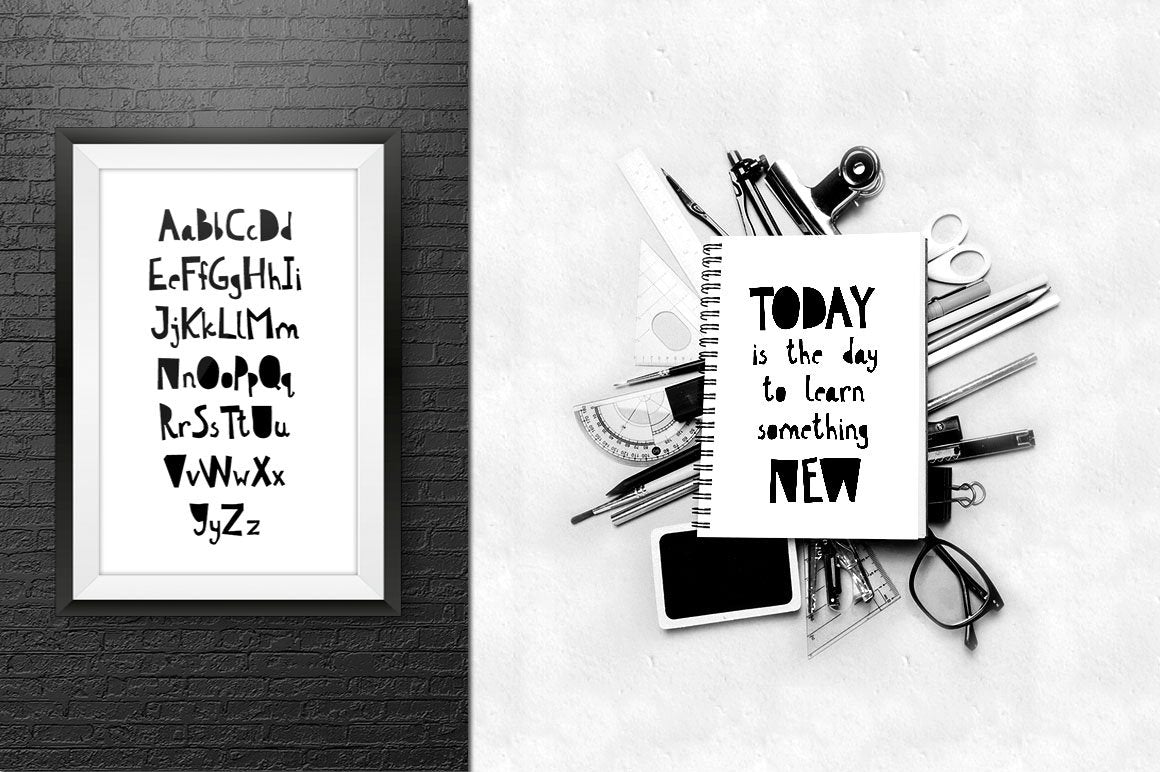 AaBbCcDd
EeFfGgHhIi
JjKkLlMm
NnOoPpQq
RrSsTtUu
VvWwXx
YyZz
TODAY
is the day
to learn
something
NEW